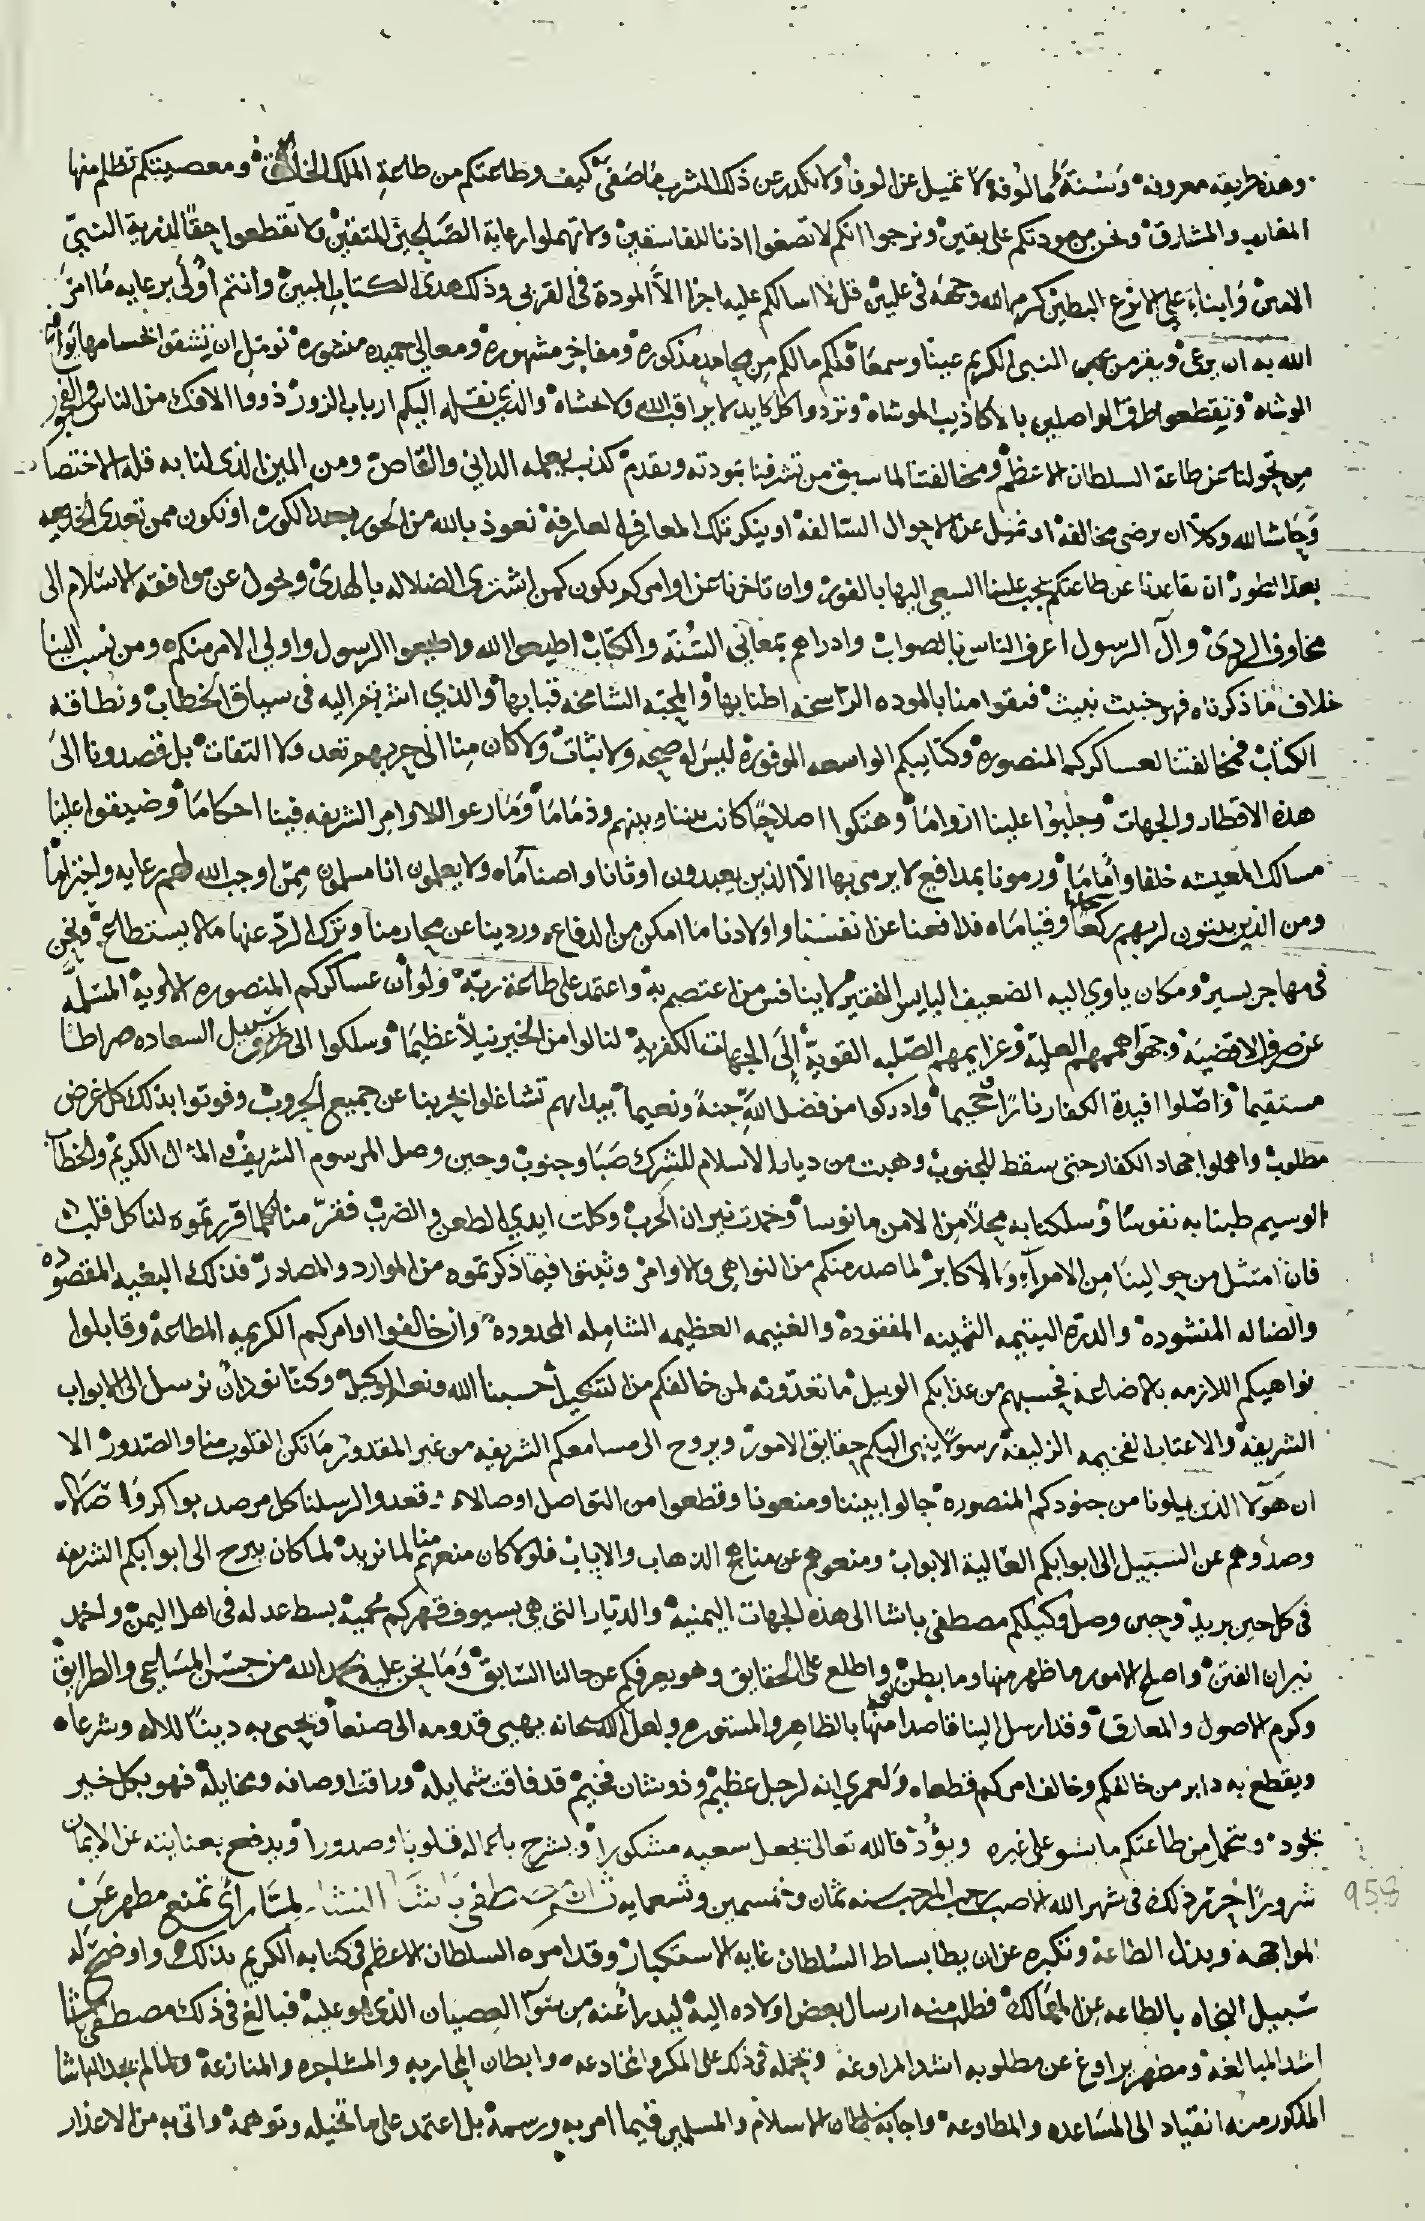 وهذه طريقه معروفه وسنة مألوفه لا تميل عن الوفا ولا نكدر عن ذلك المشرب ما صفى كيف وطاعتكم من طاعة الملك الخالق ومعصيتكم تظلم منها
المغارب والمشارق ونحن من مودتكم على يقين ونرجوا انكم لا تصغوا اذنا للفاسقين ولا تهملوا رعاية الصالحين المتقين ولا تقطعوا حقا لذرية النبي
الامين وابناء علي الانزع البطين كرم الله وجهه في عليين قل لا اسالكم عليه اجرا الا المودة في القربى وذلك هدى الكتاب المبين وانتم اولى برعايه ما امر
الله به ان يرعى ويقر من النبي الكريم عينا وسمعا فلكم مالكم من محامد مذكوره ومفاخر مشهوره ومعالي حميده منشوره نومل ان
الوشاه وتقطعوا طرق الواصلين بالاكاذيب الموشاه وتردوا كل كايد لا يراقب الله ولا يخشاه والذي نقله اليكم ارباب الزور ذووا الافك من الناس والفجور
من تحولنا عن طاعة السلطان الاعظم ومخالفتنا لما سبق من تشرفنا بمودته وتقدم كذب يعلمه الداني والقاص ومن الميزا لذى لنا به قله الاختصا
وحاشا لله وكلا ان يرضى مخالفه او نميل عن الاحوال السالفه او ينكر تلك المعارف العارفة نعوذ بالله من الحور بعد الكور او نكون ممن تعدى
بعد ان تقاعدنا عن طاعتكم يجب علينا السعي اليها بالفور وان تاخرنا عن اوامركم يكون كمن اشترى الضلاله بالهدى وتحول عن موافقه الاسلام الى
مخاوف الردى وآل الرسول اعرف الناس بالصواب وادراهم بمعاني السنة والكتاب اطيعوا الله واطيعوا الرسول واولي الامر منكم ومن نسب الينا
خلاف ما ذكرناه فهو خبيث فثقوا منا بالموده الراسخه اطنابها والمحبه الشامخه قبابها والذي اشرتم اليه في سياق الخطاب ونطاقه
الكتاب فمخالفتنا لعساكركم المنصوره وكتايبكم الواسعه الموفوره ليس له صحه ولا ثبات ولا كان منا الى حربهم تعد ولا التفات بل قصدونا الى
هذه الاقطار والجهات وجلبوا علينا اروامًا وهتكوا اصلاحًا كانت بيننا وبينهم وذمامًا وما رعوا للاوامر الشريفه فينا احكامًا وضيقوا علينا
مسالك المعيشه خلفا وأماما ورمونا بمدافع لا يرمى بها الا الذين يعبدون اوثانا واصناما ولا يعلمون انا مسلمون ممن اوجب الله لهم رعايه واحتراما
ومن الذين يبيتون لربهم سجدا وقياما فدافعنا عن انفسنا واولادنا ما امكن من الدفاع وردينا عن محارمنا وترك الرد عنها ما لا يستطاع ونحن
في مهاجر يسير ومكان ياوي اليه الضعيف البايس الفقير لا ينافس من اعتصم به واعتمد على طاعة ربه ولو أن عساكركم المنصوره الالويه المسلمه
عن صرف الاقضية وجهوا هممهم العليه وعزايمهم الصلبه القوية إلى الجهات الكفريه لنالوا من الخير نيلا عظيما وسلكوا الى طريق سبيل السعاده صراطا
مستقيما واصلوا افيدة الكفار نارًا جحيما وادركوا من فضل الله جنة ونعيما بيد انهم تشاغلوا بحربنا عن جميع الحروب وفوتوا بذلك كل غرض
مطلوب واهملوا جهاد الكفار حتى سقط للجنوب وهبت من ديار الاسلام للشرك صبا وجنوب وحين وصل المرسوم الشريف في المثال الكريم والخطاب
الوسيم طبنا به نفوسا وسلكنا به محلا من الامن مانوسا وخمدت نيران الحرب وكلت ايدي الطعن والضرب فقر منا كلما قررتموه لنا كل قلب
فان امتثل من حوالينا من الامرآء والاكابر لما صدر منكم من النواهي والاوامر وثبتوا فيما ذكرتموه من الموارد والمصادر فذلك البغيه المقصوده
والضاله المنشوده والدره اليتيمه الثمينه المفقوده والغنيمه العظيمه الشامله المحدوده وان خالفوا اوامركم الكريمه المطاعه وقابلوا
نواهيكم اللازمه بالاضاعه فحسبهم من عذابكم الوبيل ما تعدونه لمن خالفكم من التنكيل حسبنا الله ونعم الوكيل وكنا نود أن نرسل الى الابواب
الشريفه والاعتاب الفخيمه الزليفه رسولا ينهى اليكم حقايق الامور ويروح الى مسامعكم الشريفه من غير المقدور ما تكن القلوب منا والصدور الا
ان هؤلا الذين يلونا من جنودكم المنصوره جالوا بيننا ومنعونا وقطعوا من التواصل اوصالا قعدوا لرسلنا كل مرصد
وصدوهم عن السبيل الى ابوابكم العالية الابواب ومنعوهم عن مناهج الذهاب والاياب فلولا كان منعهم منا لما نريد لما كان يبرح الى ابوابكم الشريفه
في كل حين بريد وحين وصل وكيلكم مصطفى باشا الى هذه الجهات اليمنيه والديار التي هي بسيوف قهركم محميه بسط عدله في اهل اليمن واخمد
نيران الفتن واصلح الامور ما ظهر منها وما بطن واطلع على الحقايق وهو يعرفكم عن حالنا السابق وما نحن عليه بحمد الله من حسن المساعي والطرايق
وكرم الاصول والمعارق وقد ارسل الينا قاصدا منها بالظاهر والمستوره ولعل الله سبحانه يهيى قدومه الى صنعا ويحيى به دينا للاله وشرعا
ويقطع به دابر من خالفكم وخالف امركم قطعا ولعمري انه لرجل عظيم وذو شان فخيم قد فاقت شمايله وراقت اوصافه ومخايله فهو بكل خير
يجود ويتحمل من طاعتكم ما يشق على غيره ويؤد فالله تعالى يجعل سعيه مشكورا ويشرح باعماله قلوبا وصدورا ويدفع بعنايته عن الايمان
شرورًا حرر ذلك في شهر الله الاصب رجب المرجب سنه ثمان وخمسين وتسعمايه ثم ان مصطفى باشا النشار لما رأى تمنع مطهر عن
المواجهه وبذل الطاعه وتكبره عن ان يطا بساط السلطان غايه الاستكبار وقد امره السلطان الاعظم في كتابه الكريم بذلك واوضح له
سبيل النجاه بالطاعه عن المهالك فطلب منه ارسال بعض اولاده اليه ليدرا عنه من سوء العصيان الذى هو عليه فبالغ في ذلك مصطفى باشا
اشد المبالغه ومطهر يراوغ عن مطلوبه اشد المراوغه ويحمله في ذلك على المكر والمخادعه وابطان المحاربه والمشاجره والمنازعه ولما لم يجد الباشا
المذكور منه انقياد الى المساعده والمطاوعه واجابة سلطان الاسلام والمسلمين فيما امر به ورسمه بل اعتمد على ما تخيله وتوهمه واتى به من الاعذار
958